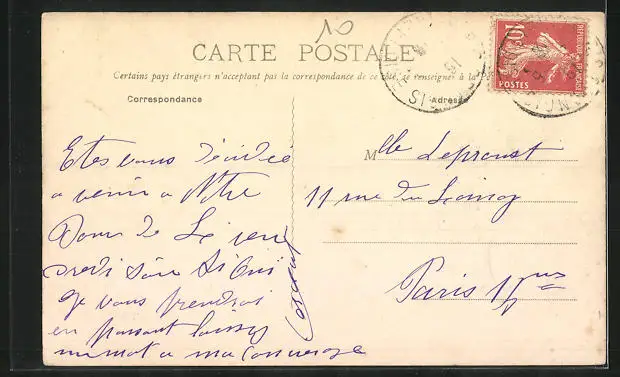 10
CARTE POSTALE
Certains pays étrangers n'acceptent pas la correspondance de ce côté, se renseigner à la Poste
Correspondance
Adresse
10c
REPUBLIQUE FRANCAISE
POSTES
Etes vous décidée
a venir a Notre
Dame de
vendredi soir si oui
je vous prendrai
en passant laissez
un mot a ma
Mlle Leproust
11 rue du
Paris